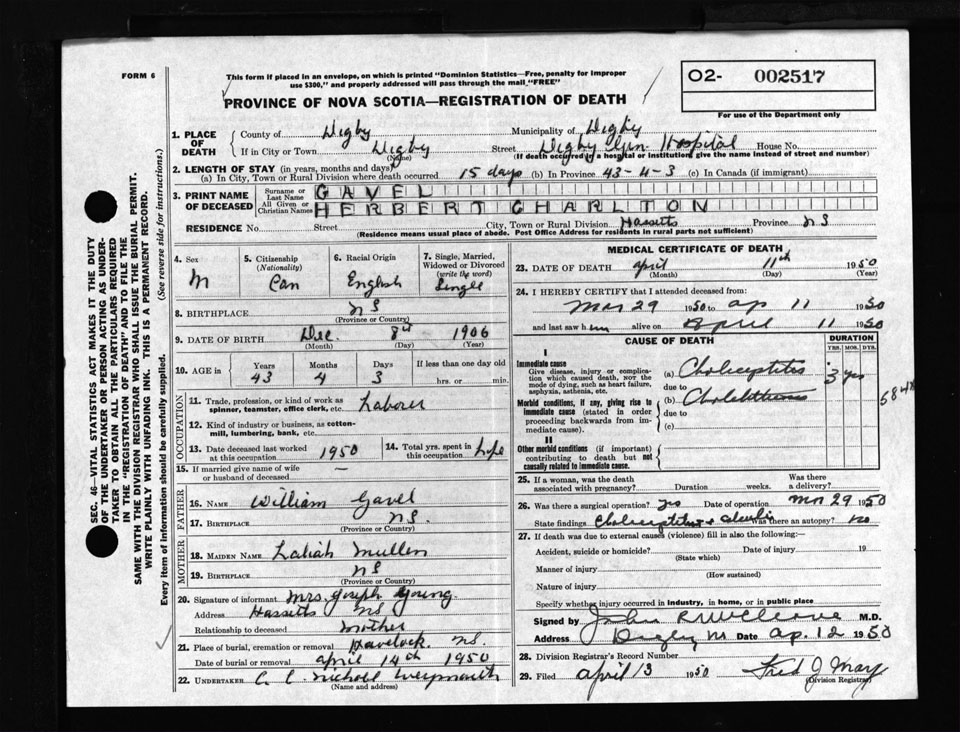 FORM 6
This form if placed in an envelope, on which is printed "Dominion Statistics—Free, penalty for improper
use $300," and properly addressed will pass through the mail "FREE"
PROVINCE OF NOVA SCOTIA—REGISTRATION OF DEATH
O2- 002517
For use of the Department only
SEC. 46—VITAL STATISTICS ACT MAKES IT THE DUTY
OF THE UNDERTAKER OR PERSON ACTING AS UNDER-
TAKER TO OBTAIN ALL THE PARTICULARS REQUIRED
IN THE "REGISTRATION OF DEATH" AND TO FILE THE
SAME WITH THE DIVISION REGISTRAR WHO SHALL ISSUE THE BURIAL PERMIT.
WRITE PLAINLY WITH UNFADING INK. THIS IS A PERMANENT RECORD.
Every item of information should be carefully supplied. (See reverse side for instructions.)
1. PLACE OF DEATH
County of Digby Municipality of Digby
If in City or Town Digby Street Digby Gen. Hospital House No.
(Name) (If death occurred in a hospital or institution, give the name instead of street and number)
2. LENGTH OF STAY (in years, months and days)
(a) In City, Town or Rural Division where death occurred 15 days (b) In Province 43-4-3 (c) In Canada (if immigrant)
3. PRINT NAME OF DECEASED
Surname or Last Name GAVEL
All Given or Christian Names HERBERT CHARLTON
RESIDENCE No. Street City, Town or Rural Division Hassetts Province NS
(Residence means usual place of abode. Post Office Address for residents in rural parts not sufficient)
4. Sex M
5. Citizenship (Nationality) Can
6. Racial Origin English
7. Single, Married, Widowed or Divorced (write the word) Single
8. BIRTHPLACE NS
(Province or Country)
9. DATE OF BIRTH Dec. 8th 1906
(Month) (Day) (Year)
10. AGE in Years 43 Months 4 Days 3 If less than one day old hrs. or min.
OCCUPATION
11. Trade, profession, or kind of work as spinner, teamster, office clerk, etc. Laborer
12. Kind of industry or business, as cotton-mill, lumbering, bank, etc.
13. Date deceased last worked at this occupation 1950
14. Total yrs. spent in this occupation Life
15. If married give name of wife or husband of deceased —
FATHER
16. NAME William Gavel
17. BIRTHPLACE NS.
(Province or Country)
MOTHER
18. MAIDEN NAME Mullen
19. BIRTHPLACE NS
(Province or Country)
20. Signature of informant Mrs. Joseph Young
Address Hassetts NS
Relationship to deceased Mother
21. Place of burial, cremation or removal Havelock. NS.
Date of burial or removal April 14th 1950
22. UNDERTAKER C. C. Nicholl Weymouth
(Name and address)
MEDICAL CERTIFICATE OF DEATH
23. DATE OF DEATH April 11th 1950
(Month) (Day) (Year)
24. I HEREBY CERTIFY that I attended deceased from:
Mar 29 1950 to Ap 11 1950
and last saw him alive on April 11 1950
CAUSE OF DEATH
DURATION
YRS. MOS. DYS.
I
Immediate cause
Give disease, injury or complication which caused death, not the mode of dying, such as heart failure, asphyxia, asthenia, etc.
(a)
3 yrs
due to
Morbid conditions, if any, giving rise to immediate cause (stated in order proceeding backwards from immediate cause).
(b)
due to
(c)
II
Other morbid conditions (if important) contributing to death but not causally related to immediate cause.
25. If a woman, was the death associated with pregnancy? Duration weeks. Was there a delivery?
26. Was there a surgical operation? Yes Date of operation Mar 29 1950
State findings Was there an autopsy? No
27. If death was due to external causes (violence) fill in also the following:—
Accident, suicide or homicide? Date of injury 19
(State which)
Manner of injury
(How sustained)
Nature of injury
Specify whether injury occurred in industry, in home, or in public place
Signed by John M.D.
Address Digby NS Date Ap. 12 1950
28. Division Registrar's Record Number
29. Filed April 13 1950 Fred J May
(Division Registrar)